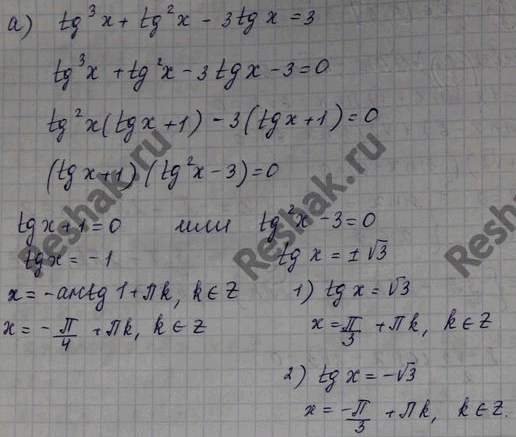 а) tg³x + tg²x - 3tgx = 3
tg³x + tg²x - 3tgx - 3 = 0
tg²x(tgx + 1) - 3(tgx + 1) = 0
(tgx + 1)(tg²x - 3) = 0
tgx + 1 = 0 или tg²x - 3 = 0
tgx = -1
tgx = ±√3
x = -arctg 1 + πk, k ∈ Z
1) tgx = √3
x = -π/4 + πk, k ∈ Z
x = π/3 + πk, k ∈ Z
2) tgx = -√3
x = -π/3 + πk, k ∈ Z.
Reshak.ru
Reshak.ru
Reshak.ru